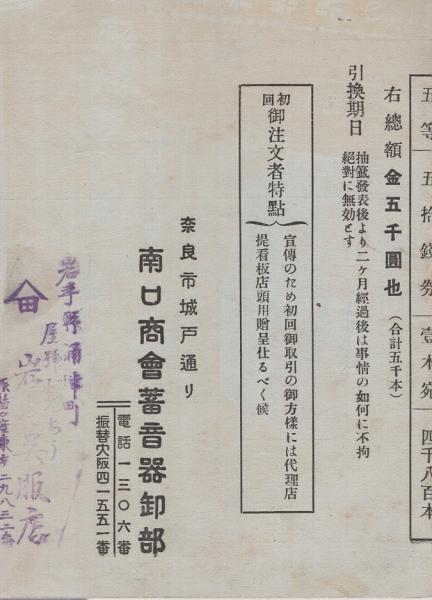 五等 五拾錢券 壹本宛 四千八百本
右總額金五千圓也(合計五千本)
引換期日 抽籤發表後より二ケ月經過後は事情の如何に不拘
絕對に無効とす
初回御注文者特點
宣傳のため初回御取引の御方樣には代理店
提看板店頭用贈呈仕るべく候
奈良市城戸通り
南口商會蓄音器卸部
電話一三〇六番
振替大阪四一五五一番
岩手縣
町
田
屋
吳服店
二九八三二番